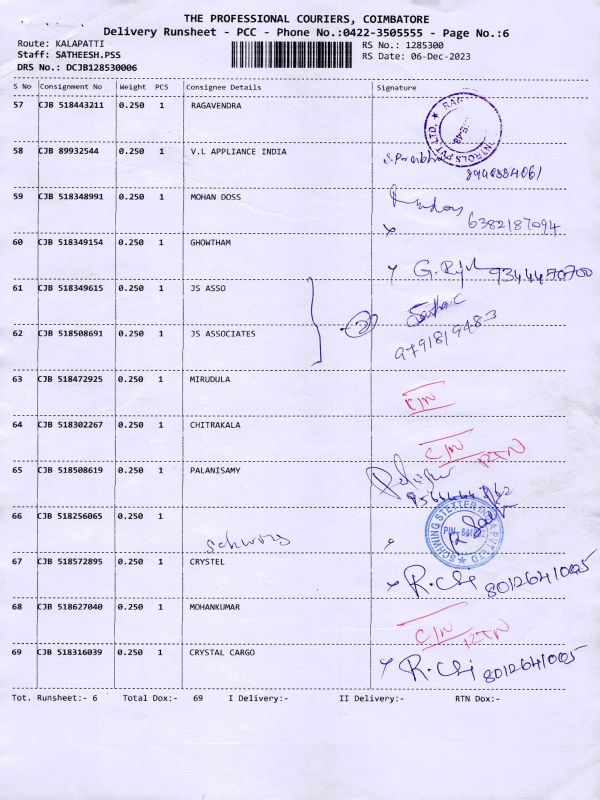 THE PROFESSIONAL COURIERS, COIMBATORE
Delivery Runsheet - PCC - Phone No.:0422-3505555 - Page No.:6
Route: KALAPATTI
RS No.: 1285300
Staff: SATHEESH.PSS
RS Date: 06-Dec-2023
DRS No.: DCJB128530006
S No Consignment No Weight PCS Consignee Details Signature
57 CJB 518443211 0.250 1 RAGAVENDRA
58 CJB 89932544 0.250 1 V.L APPLIANCE INDIA
59 CJB 518348991 0.250 1 MOHAN DOSS
6382187094
60 CJB 518349154 0.250 1 GHOWTHAM
9344470700
61 CJB 518349615 0.250 1 JS ASSO
62 CJB 518508691 0.250 1 JS ASSOCIATES
9791819483
63 CJB 518472925 0.250 1 MIRUDULA
C/N
64 CJB 518302267 0.250 1 CHITRAKALA
C/N RTN
65 CJB 518508619 0.250 1 PALANISAMY
66 CJB 518256065 0.250 1
Schwing
SCHWING STETTER INDIA PVT LTD
67 CJB 518572895 0.250 1 CRYSTEL
8012641005
68 CJB 518627040 0.250 1 MOHANKUMAR
C/N RTN
69 CJB 518316039 0.250 1 CRYSTAL CARGO
8012641005
Tot. Runsheet:- 6 Total Dox:- 69 I Delivery:- II Delivery:- RTN Dox:-